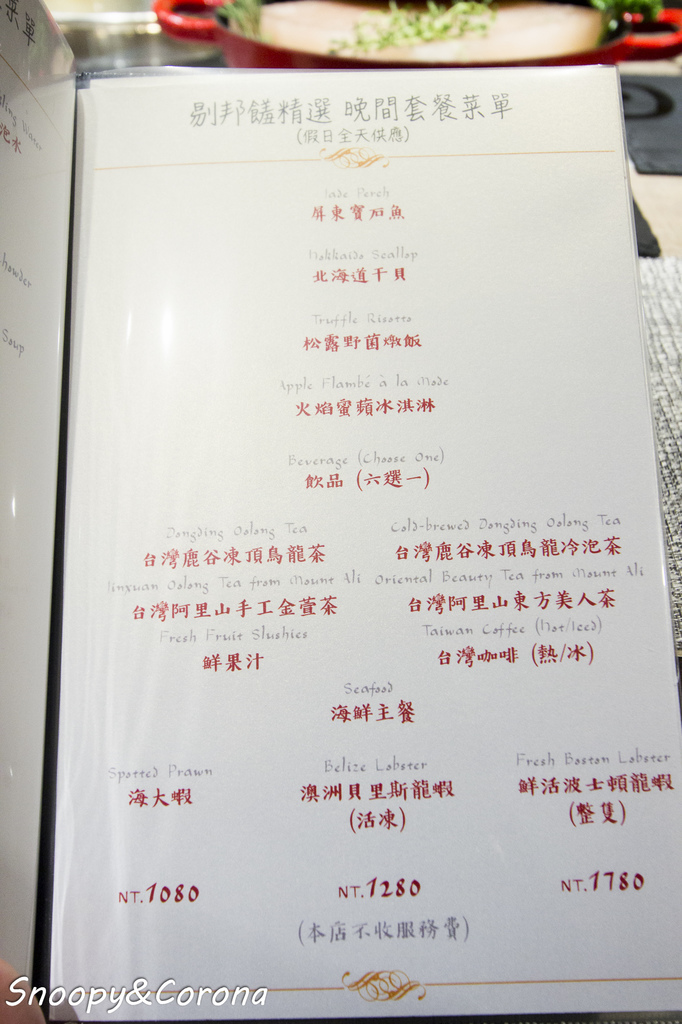 菜單
剔邦饈精選 晚間套餐菜單
(假日全天供應)
Jade Perch
屏東寶石魚
Hokkaido Scallop
北海道干貝
Truffle Risotto
松露野菌燉飯
Apple Flambé à la Mode
火焰蜜蘋冰淇淋
Beverage (Choose One)
飲品 (六選一)
Dongding Oolong Tea
台灣鹿谷凍頂烏龍茶
Cold-brewed Dongding Oolong Tea
台灣鹿谷凍頂烏龍冷泡茶
Jinxuan Oolong Tea from Mount Ali
台灣阿里山手工金萱茶
Oriental Beauty Tea from Mount Ali
台灣阿里山東方美人茶
Fresh Fruit Slushies
鮮果汁
Taiwan Coffee (Hot/Iced)
台灣咖啡 (熱/冰)
Seafood
海鮮主餐
Spotted Prawn
海大蝦
NT.1080
Belize Lobster
澳洲貝里斯龍蝦
(活凍)
NT.1280
Fresh Boston Lobster
鮮活波士頓龍蝦
(整隻)
NT.1780
(本店不收服務費)
Water
泡水
howder
Soup
Snoopy&Corona